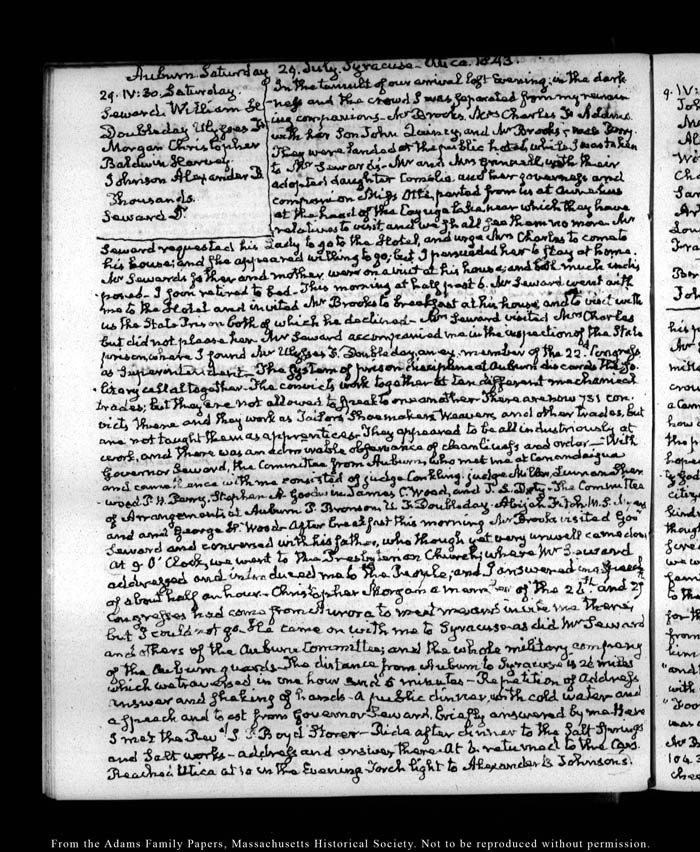 Auburn Saturday 29. July. Syracuse. Utica. 1843.
29. IV:30. Saturday.
Seward William H
Doubleday Ulysses F.
Morgan Christopher
Baldwin Harvey
Johnson Alexander B
Thousands
Seward Dr.
In the tumult of our arrival last Evening; in the dark-
ness and the crowd I was separated from my remain
ing companions. Mr Brooks, Mrs Charles F. Adams
with her Son John Quincy, and Mr Brooks's
They were landed at the public hotel, while I was taken
to Mr Seward's. Mr and Mrs Grinnell, with their
adopted daughter Cornelia and her governess and
companion Miss Otte, parted from us at
at the head of the Cayuga lake, near which they have
relatives to visit and we shall see them no more. Mr
Seward requested his Lady to go to the Hotel, and urge Mrs Charles to come to
his house; and she appeared willing to go; but I persuaded her to stay at home.
Mr Seward's father and mother were on a visit at his house, and both much indis
posed. I soon retired to bed. This morning at half past 6. Mr Seward went with
me to the Hotel and invited Mr Brooks to breakfast at his house, and to visit with
us the State Prison both of which he declined. Mrs Seward visited Mrs Charles
but did not please her. Mr Seward accompanied me in the inspection of the State
prison, where I found Mr Ulysses F. Doubleday, an ex. member of the 22d Congress
as Superintendent. The System of prison discipline at Auburn discards the So-
litary cell altogether. The convicts work together at ten different mechanical
trades; but they are not allowed to speak to one another. There are now 731 con.
victs there and they work as Tailors, Shoemakers, Weavers, and other trades, but
are not taught them as apprentices. They appeared to be all industriously at
work, and there was an admirable observance of cleanliness and order. With
Governor Seward, the Committee from Auburn who met me at Canandaigua
and came thence with me consisted of judge Conkling, judge Miller,
wood P. H. Perry, Stephen A. Goodwin James C. Wood, and J. L. Doty. The Committee
of Arrangements at Auburn P. Bronson, U. F. Doubleday. Abijah Fitch M. S.
and and George H. Wood. After breakfast this morning Mr Brooks visited Govr
Seward and conversed with his father, who though yet very unwell came down
At 9 O'Clock, we went to the Presbyterian Church; where Mr Seward
addressed and introduced me to the People, and I answered in a speech
of about half an hour. Christopher Morgan a member of the 26th and 27
Congresses had come from Aurora to meet me and invite me there,
but I could not go. He came on with me to Syracuse as did Mr Seward
and others of the Auburn Committee; and the whole military company
of the Auburn guards. The distance from Auburn to Syracuse is 26 miles
which we traversed in one hour and 5 minutes. Repetition of Address
answer and shaking of hands. A public dinner, with cold water and
a speach and toast from Governor Seward, briefly answered by me. Here
I met the Revd S. F. Boyd Storer. Ride after dinner to the Salt Springs
and Salt works. address and answer there. At 6. returned to the Cars.
Reached Utica at 10 in the Evening Torch light to Alexander B Johnson's.
From the Adams Family Papers, Massachusetts Historical Society. Not to be reproduced without permission.